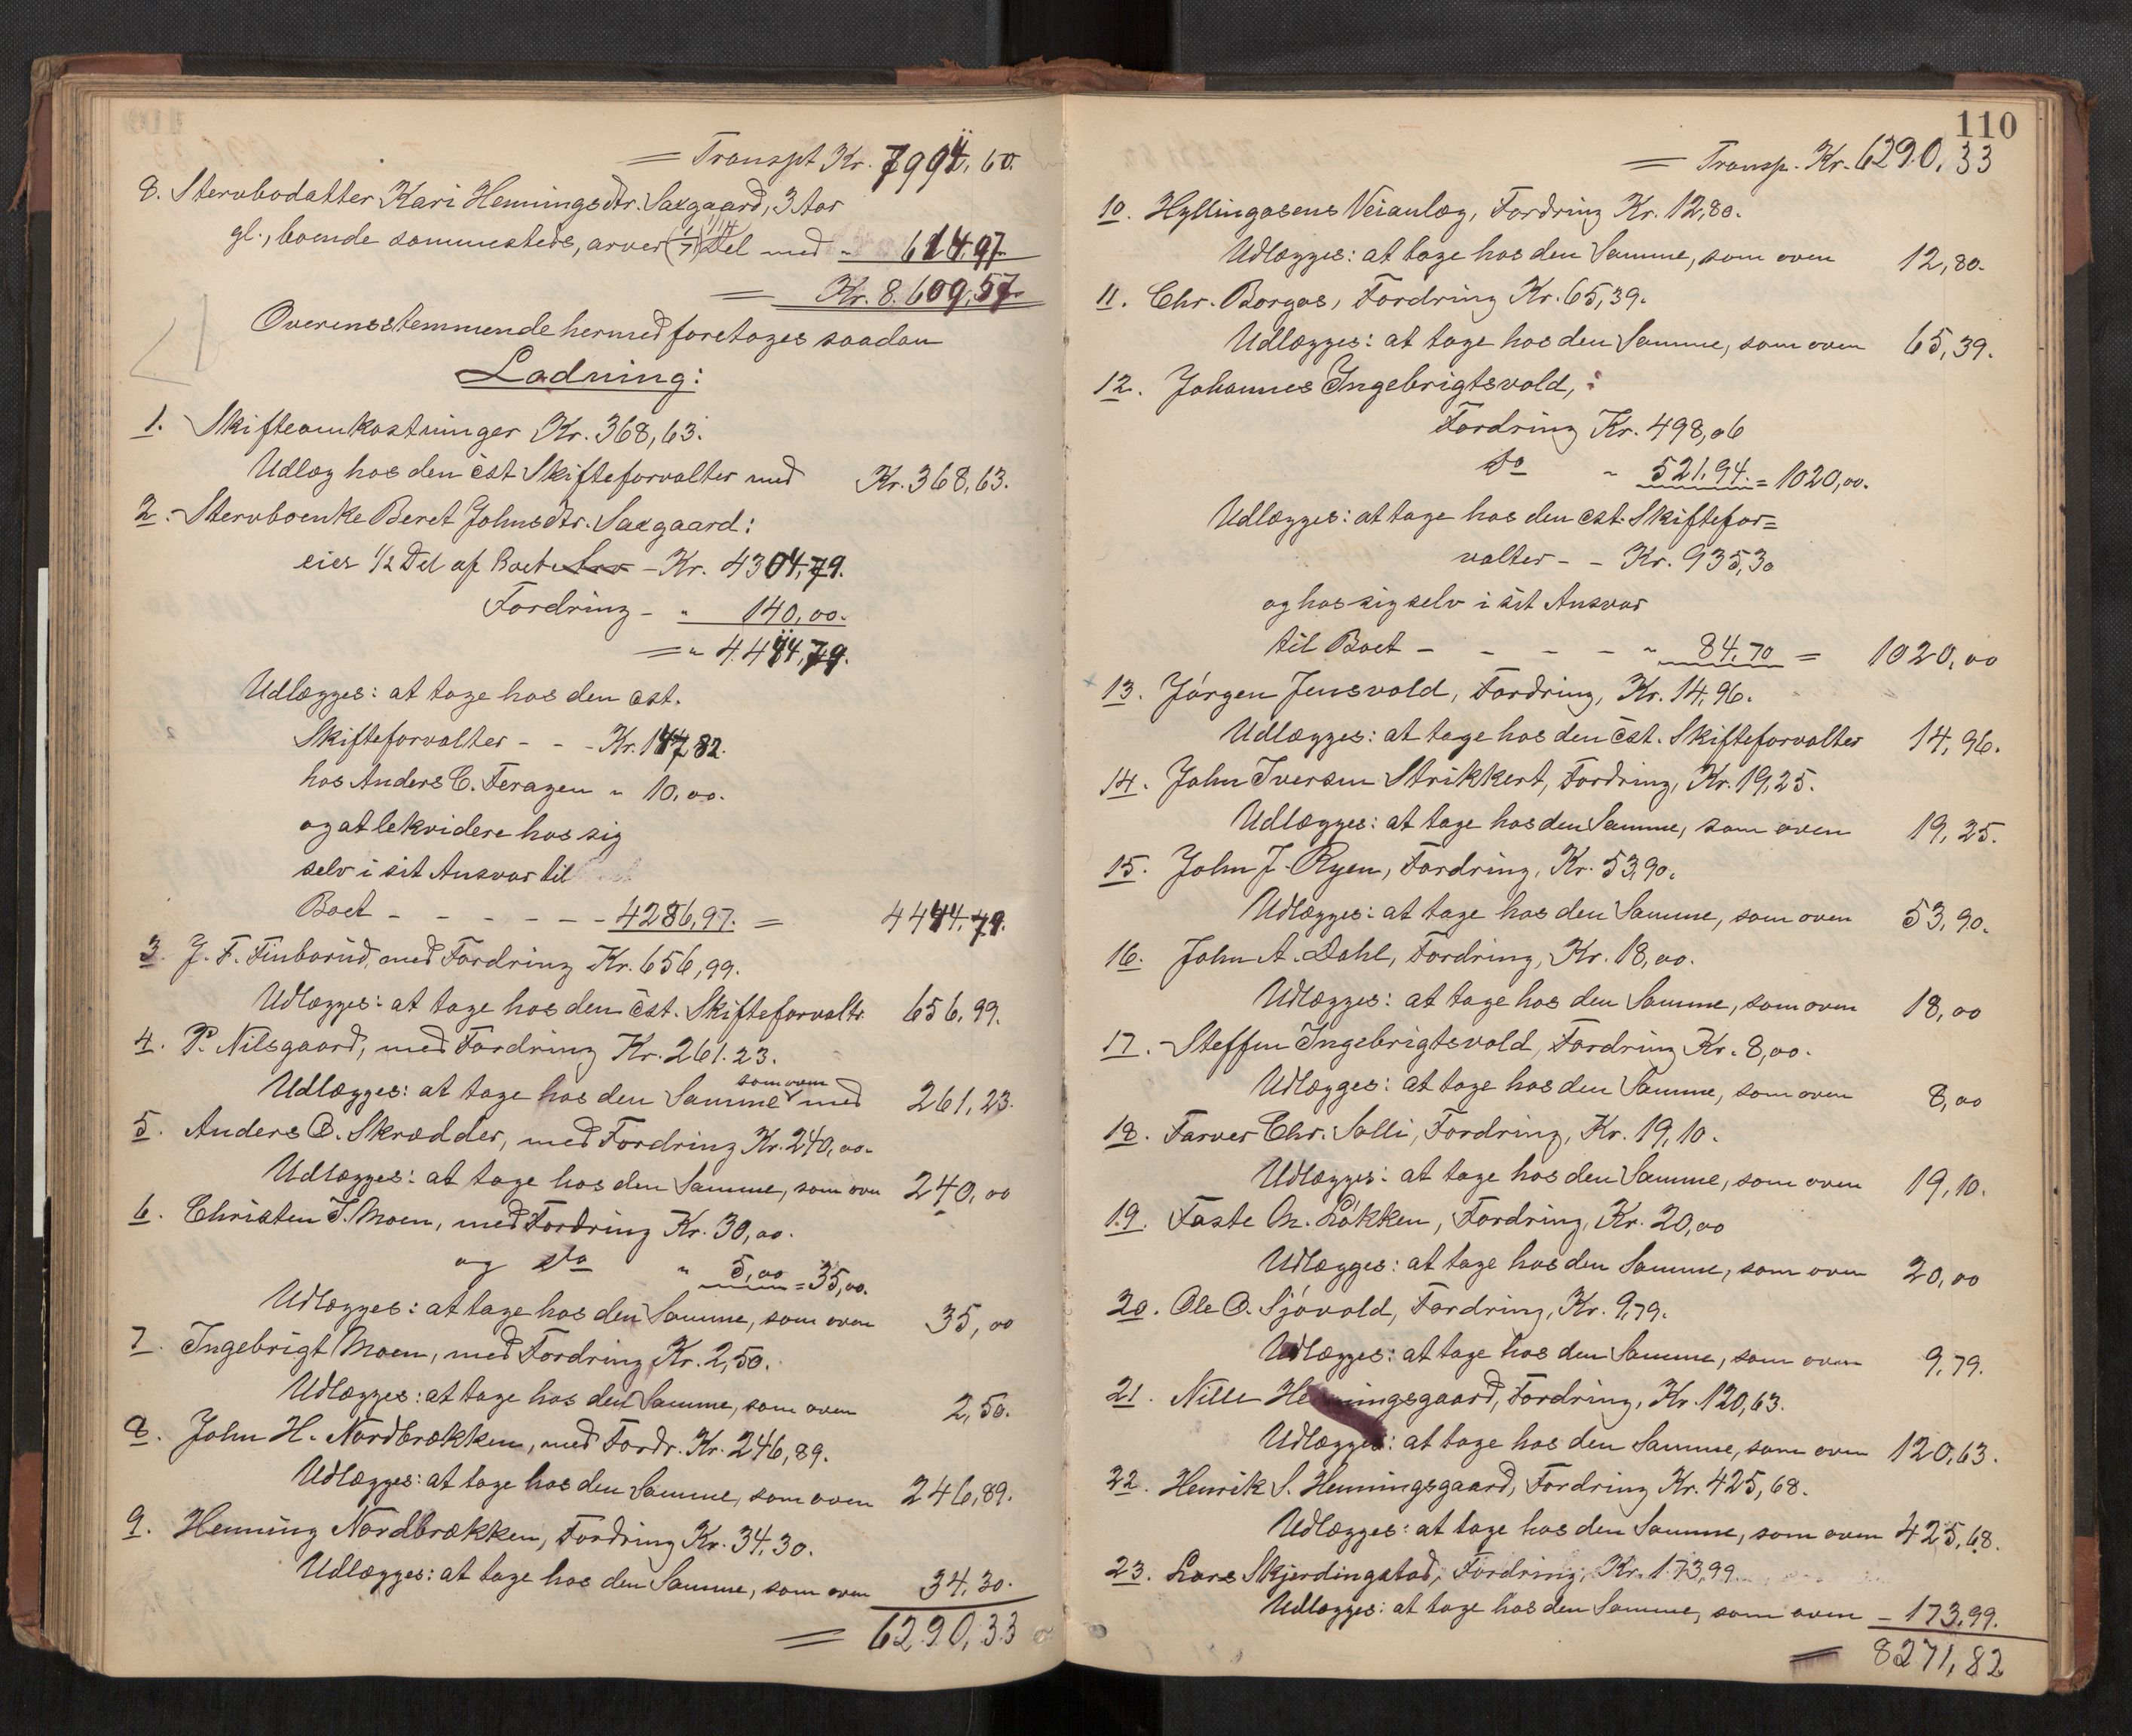 = Transpt Kr. 7994,60.
8. Stervbodatter Kari Henningsdtr. Saxgaard, 3 Aar
gl., boende sammesteds, arver (1/7) 1/14 Del med " 614,97.
= Kr. 8.609,57.
Overensstemmende hermed foretages saadan
Ladning:
1. Skifteomkostninger Kr. 368,63.
Udlæg hos den cst Skifteforvalter med Kr. 368,63.
2. Stervboenke Beret Johnsdtr. Saxgaard:
eier 1/2 Del af Boet - Kr. 4304,79.
Fordring - " 140,00.
= " 4.444,79.
Udlægges: at tage hos den cst.
Skifteforvalter - - - Kr. 147,82.
hos Anders C. Feragen " 10,00.
og at lekvidere hos sig
selv i sit Ansvar til
Boet - - - - - - 4286,97. = 4444,79.
3. J. F. Finborud, med Fordring Kr. 656,99.
Udlægges: at tage hos den cst. Skifteforvaltr. 656,99.
4. P. Nilsgaard, med Fordring Kr. 261.23.
Udlægges: at tage hos den Samme som oven med 261,23.
5. Anders O. Skrædder, med Fordring Kr. 240,00.
Udlægges: at tage hos den Samme, som oven 240,00
6. Christen J. Moen, med Fordring Kr. 30,00.
og do " 5,00 = 35,00.
Udlægges: at tage hos den Samme, som oven 35,00
7. Ingebrigt Moen, med Fordring Kr. 2,50.
Udlægges: at tage hos den Samme, som oven 2,50.
8. John H. Nordbrækken, med Fordr. Kr. 246,89.
Udlægges: at tage hos den Samme, som oven 246,89.
9. Henning Nordbrækken, Fordring Kr. 34,30.
Udlægges: at tage hos den Samme, som oven 34,30.
= 6290,33
110
= Transp. Kr. 6290,33
10. Hyllingosens Veianlæg, Fordring Kr. 12,80.
Udlægges: at tage hos den Samme, som oven 12,80.
11. Chr. Borgos, Fordring Kr. 65,39.
Udlægges: at tage hos den Samme, som oven 65,39.
12. Johannes Ingebrigtsvold,:
Fordring Kr. 498,06
do " 521,94. = 1020,00.
Udlægges: at tage hos den cst. Skiftefor=
valter - - Kr. 935,30
og hos sig selv i sit Ansvar
til Boet - - - - - " 84,70 = 1020,00
13. Jørgen Jensvold, Fordring, Kr. 14,96.
Udlægges: at tage hos den cst. Skifteforvalter 14,96.
14. John Iversen Strikkert, Fordring, Kr. 19,25.
Udlægges: at tage hos den Samme, som oven 19,25.
15. John J. Ryen, Fordring, Kr. 53,90.
Udlægges: at tage hos den Samme, som oven 53,90.
16. John A. Dahl, Fordring, Kr. 18,00.
Udlægges: at tage hos den Samme, som oven 18,00
17. Steffen Ingebrigtsvold, Fordring Kr. 8,00.
Udlægges: at tage hos den Samme, som oven 8,00
18. Farver Chr. Solli, Fordring, Kr. 19,10.
Udlægges: at tage hos den Samme, som oven 19,10.
19. Faste M. Løkken, Fordring, Kr. 20,00
Udlægges: at tage hos den Samme, som oven 20,00
20. Ole O. Sjøvold, Fordring, Kr. 9,79.
Udlægges: at tage hos den Samme, som oven 9,79.
21. Nille Henningsgaard, Fordring, Kr. 120,63.
Udlægges: at tage hos den Samme, som oven 120,63.
22. Henrik S. Henningsgaard, Fordring Kr. 425,68.
Udlægges: at tage hos den Samme, som oven 425,68.
23. Lars Skjerdingstad, Fordring, Kr. 173,99
Udlægges: at tage hos den Samme, som oven - 173,99.
= 8271,82